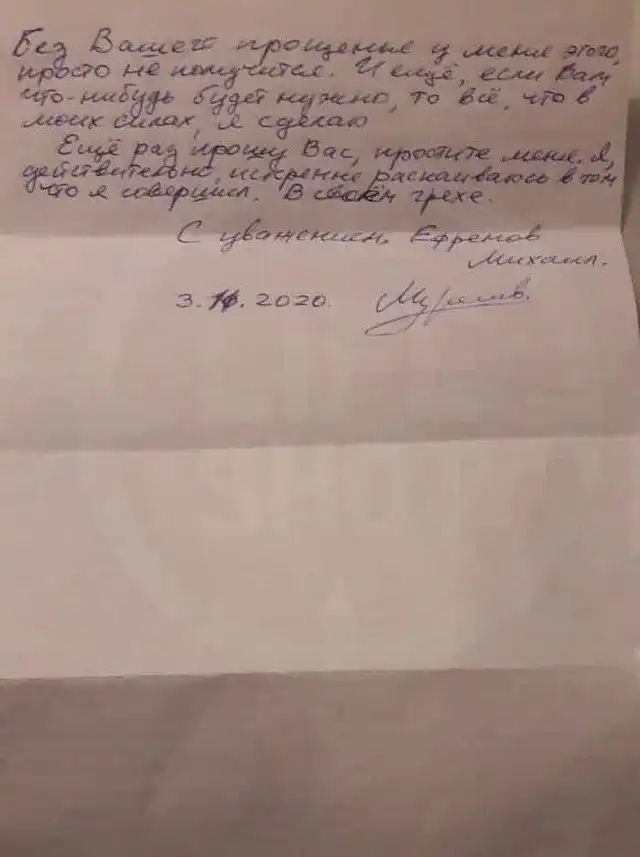 Без Вашего прощенье у меня этого,
просто не получится. И ещё, если Вам
что-нибудь будет нужно, то всё, что в
моих силах, я сделаю
Ещё раз прошу Вас, простите меня. Я,
действительно, искренне раскаиваюсь в том
что я совершил. В своём грехе.
С уважением Ефремов
Михаил.
3. . 2020.
SHOT